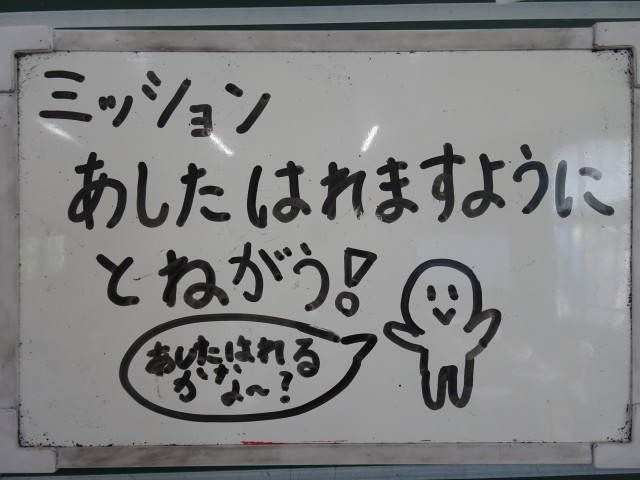 ミッション
あしたはれますように
とねがう!
あしたはれる
かなぁ〜?